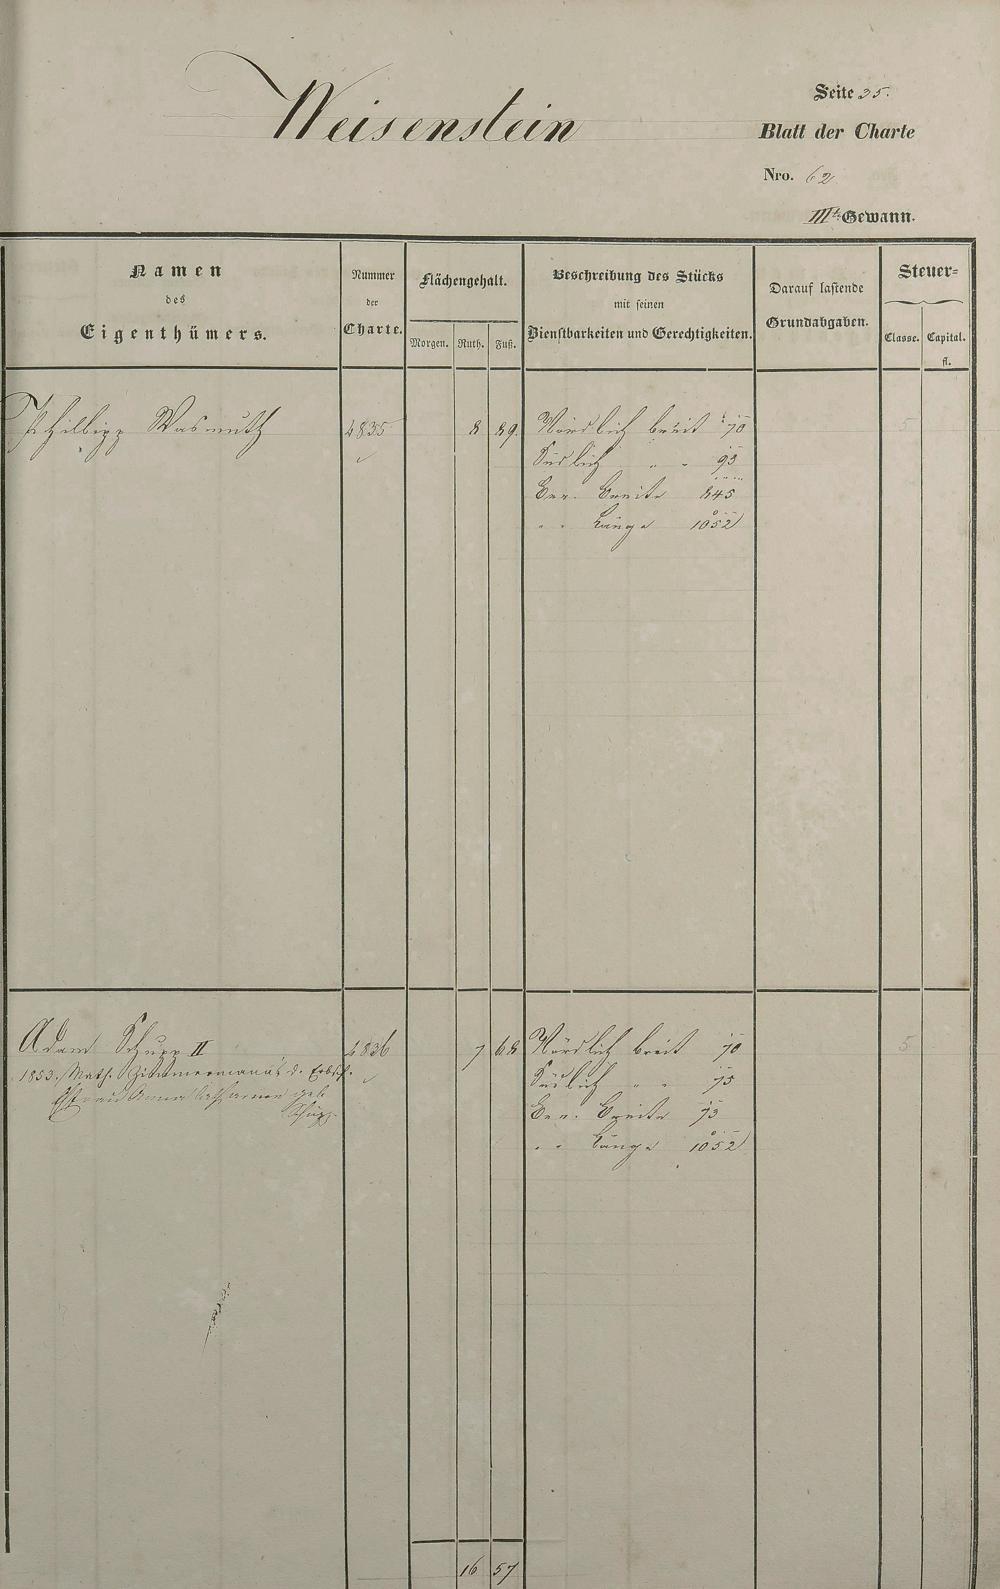 Weisenstein
Seite 35.
Blatt der Charte
Nro. 62
IIIte Gewann.
Namen des Eigenthümers.
Nummer der Charte.
Flächengehalt.
Morgen. Ruth. Fuß.
Beschreibung des Stücks mit seinen Dienstbarkeiten und Gerechtigkeiten.
Darauf lastende Grundabgaben.
Steuer-
Classe. Capital. fl.
Philipp Wasmuth 4835 8 89. Nördlich breit 70 5
Südlich " " 93
Breite 845
" " Länge 1052
Adam Schupp II 4836 7 68 Nördlich breit 70 5
1853. Math. Zimmermann's d.
Südlich " " 75
Ehefrau Anna geb.
Schupp.
Breite 73
" " Länge 1052
16 57